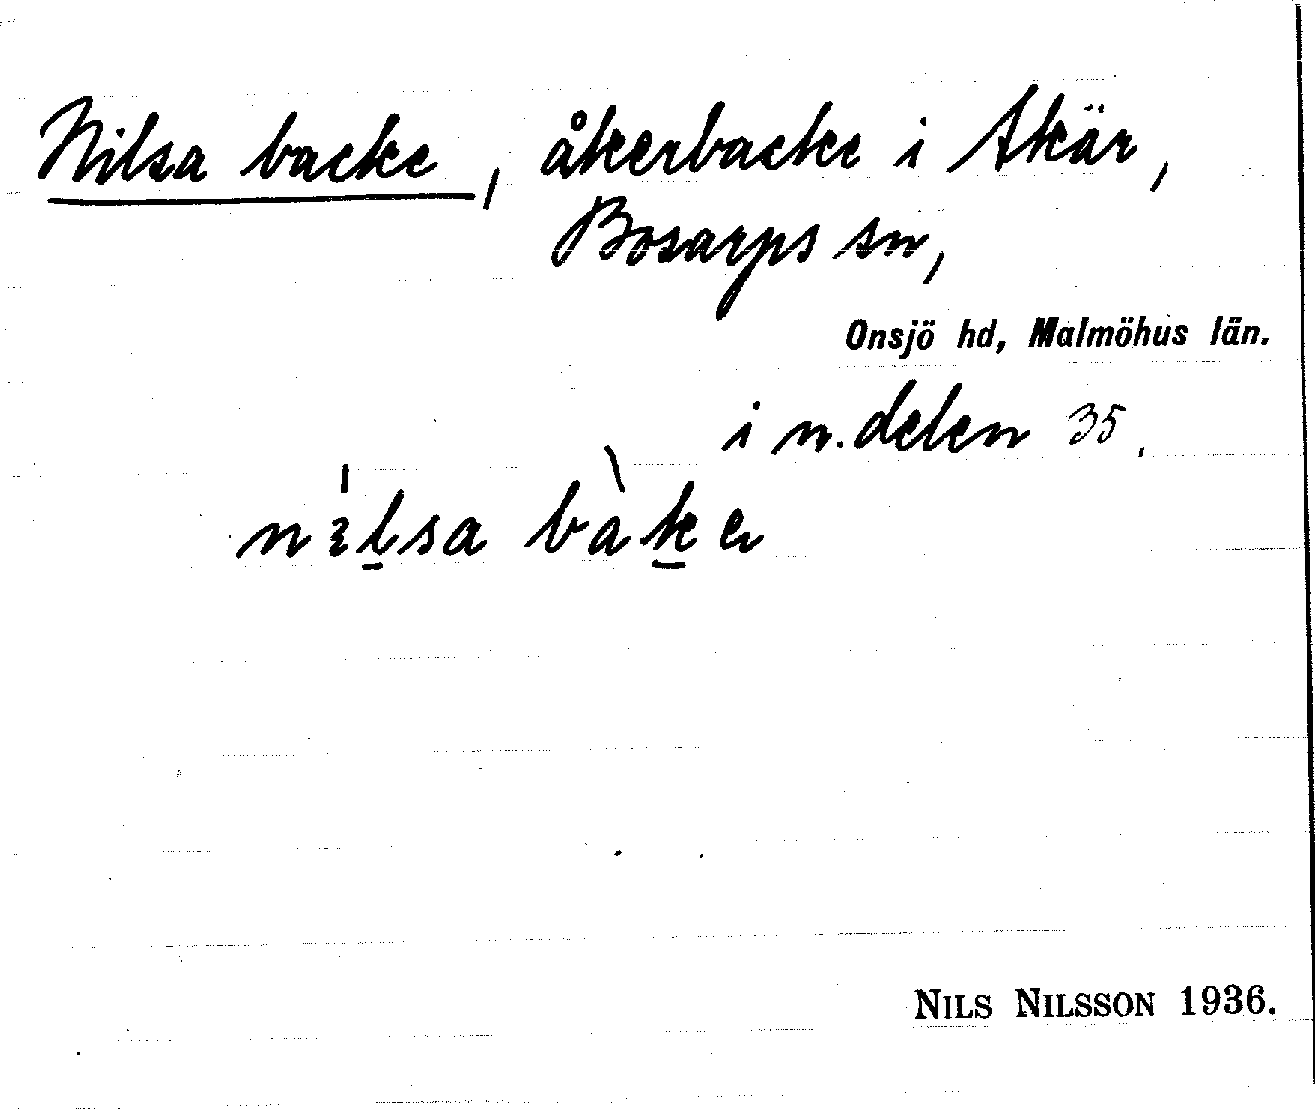 Nilsa backe, åkerbacke i Skär,
Bosarps sn,
Onsjö hd, Malmöhus län.
i n. delen 35.
nilsa bàke
NILS NILSSON 1936.